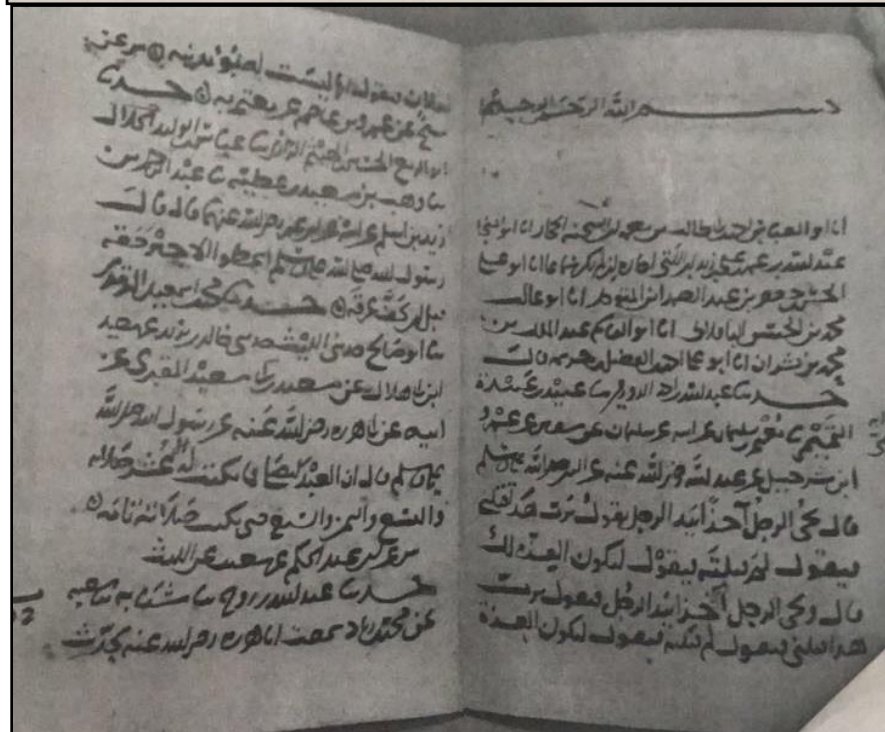 بسم الله الرحمن الرحيم
انا ابو العباس احمد بن ابي طالب بن نعمة بن الشحنة الحجار انا ابو المنجا
عبد الله بن عمر بن علي بن زيد ابن اللتي اجازة ان لم يكن سماعا انا ابو علي
الحسن بن جعفر بن عبد الصمد ابن المتوكل انا ابو غالب
محمد بن الحسن الباقلاني انا ابو القاسم عبد الملك بن
محمد بن بشران انا ابو علي احمد بن الفضل بن خزيمة قال
حدثنا عبد الله بن ثنا عبيد بن عبيدة
التيمي ثنا معتمر بن سليمان عن ابيه عن سليمان عن عن عمرو
ابن شرحبيل عن عبد الله رضي الله عنه عن النبي صلى الله عليه وسلم
قال يجي الرجل آخذا بيد الرجل يقول يرب هذا قتلني
فيقول لم قتلته فيقول لتكون العزة لك
قال ويجي الرجل آخذا بيد الرجل فيقول يرب
هذا قتلني فيقول لم قتلته فيقول لتكون العزة
لفلان فيقول انها ليست له بؤ بذنبه س عن
عن عمرو بن عاصم عن معتمر به حدثنا
ابو الربيع الحسين بن الهيثم الرازي ثنا عباس بن الوليد الخلال
ثنا وهب بن سعيد بن عطية ثنا عبد الرحمن بن
زيد بن اسلم عن ابيه عن ابن عمر رضي الله عنهما قال قال
رسول الله صلى الله عليه وسلم اعطوا الاجير حقه
قبل ان يجف عرقه حدثنا محمد بن اسمعيل الترمذي
ثنا ابو صالح حدثني الليث حدثني خالد بن يزيد عن سعيد
ابن ابي هلال عن سعيد بن ابي سعيد المقبري عن
ابيه عن ابي هريرة رضي الله عنه عن رسول الله صلى الله
عليه وسلم قال ان العبد ليصلي فما يكتب له الا عشر صلاته
فالتسع والثمن والسبع حتى يكتب صلاته تامة
س عن عبد الحكم عن شعيب عن الليث
حدثنا عبد الله بن روح ثنا شبابة ثنا شعبة
عن محمد بن زياد سمعت ابا هريرة رضي الله عنه يحدث